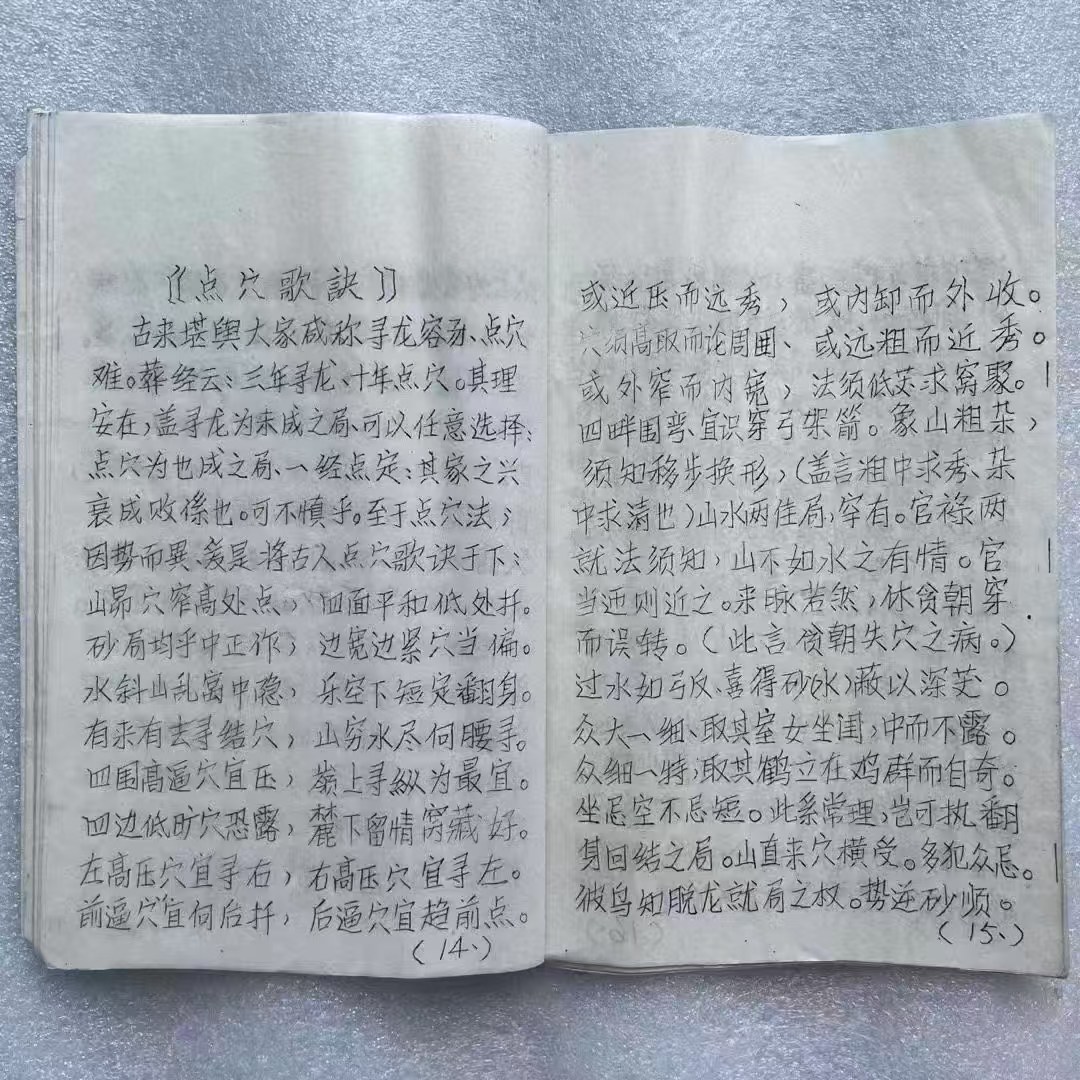 〖点穴歌訣〗
古来堪舆大家咸称寻龙容易、点穴
难。葬经云：三年寻龙、十年点穴。其理
安在，盖寻龙为未成之局、可以任意选择；
点穴为也成之局、一经点定；其家之兴
衰成败係也。可不慎乎。至于点穴法；
因势而異、爰是将古人点穴歌诀于下：
山昂穴窄高处点， 四面平和低处扦。
砂局均乎中正作， 边宽边紧穴当偏。
水斜山乱富中隐， 乐空下短定翻身。
有来有去寻结穴， 山穷水尽何腰寻。
四围高逼穴宜压， 嶺上寻縱为最宜。
四边低旷穴恐露， 麓下留情窝藏好。
左高压穴宜寻右， 右高压穴宜寻左。
前逼穴宜何后扦， 后逼穴宜趋前点。
(14、)
或近压而远秀， 或内卸而外收。
穴须高取而论周囲、 或远粗而近秀。
或外窄而内宽， 法须低芡求窝聚。
四畔围弯、宜识穿弓架箭。象山粗杂，
须知移步换形，(盖言粗中求秀、杂
中求清也)山水两佳局，罕有。官禄两
就法须知，山不如水之有情。官
当迊则近之。来脉若然，休贪朝穿
而误转。(此言贪朝失穴之病。)
过水如弓反、喜得砂(水)蔽以深芡。
众大一细、取其室女坐闺，中而不露。
众细一特，取其鹤立在鸡群而自奇。
坐忌空不忌短。此系常理，岂可执翻
身回结之局。山直来穴横受。多犯众忌。
彼鸟知脱龙就局之权。势逆砂顺。
(15、)